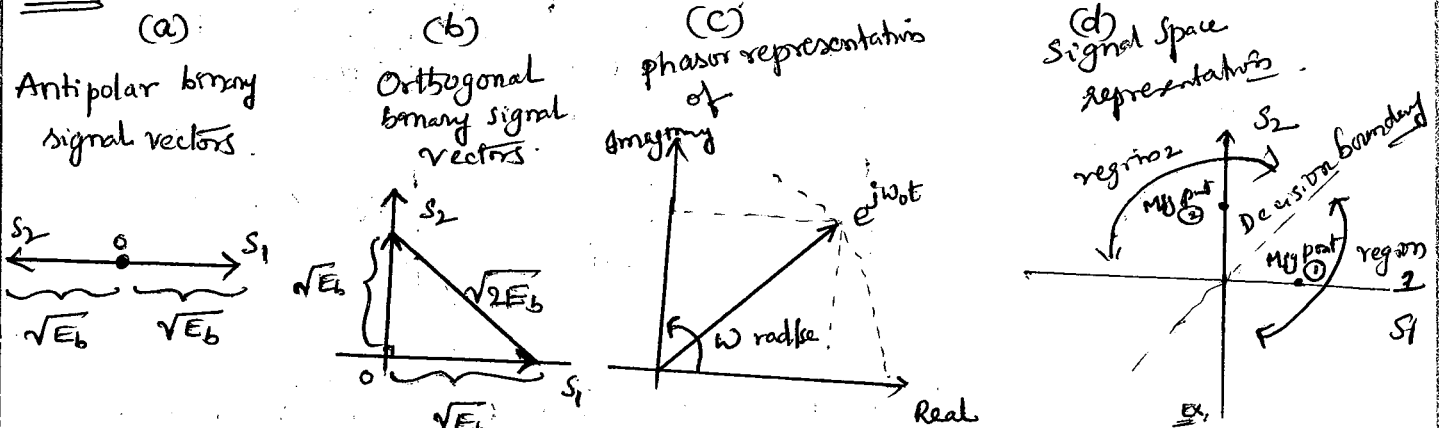 (a)
Antipolar binary
signal vectors.
S2
0
S1
√Eb
√Eb
(b)
Orthogonal
binary signal
vectors.
S2
√Eb
√2Eb
0
S1
√Eb
(c)
phasor representation
of
Imaginary
e^jω0t
ω rad/se.
Real
(d)
Signal Space
representation.
S2
region2
Decision boundary
Msg point
②
Msg point
①
region
S1
Ex,